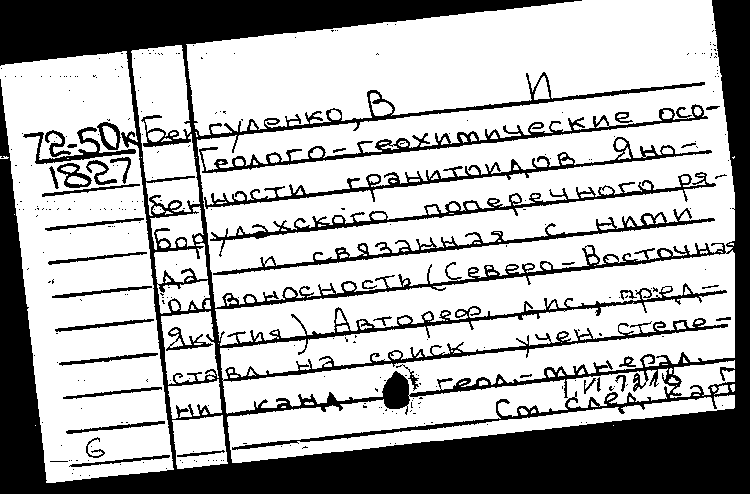 72-50к
1827
Бейгуленко, В И
Геолого-геохимические осо-
бенности гранитоидов Яно-
Борулахского поперечного ря-
да и связанная с ними
оловоносность (Северо-Восточная
Якутия). Автореф. дис., пред-
ставл. на соиск. учен. степе-
ни канд. геол.-минерал.
См. след. карт
6